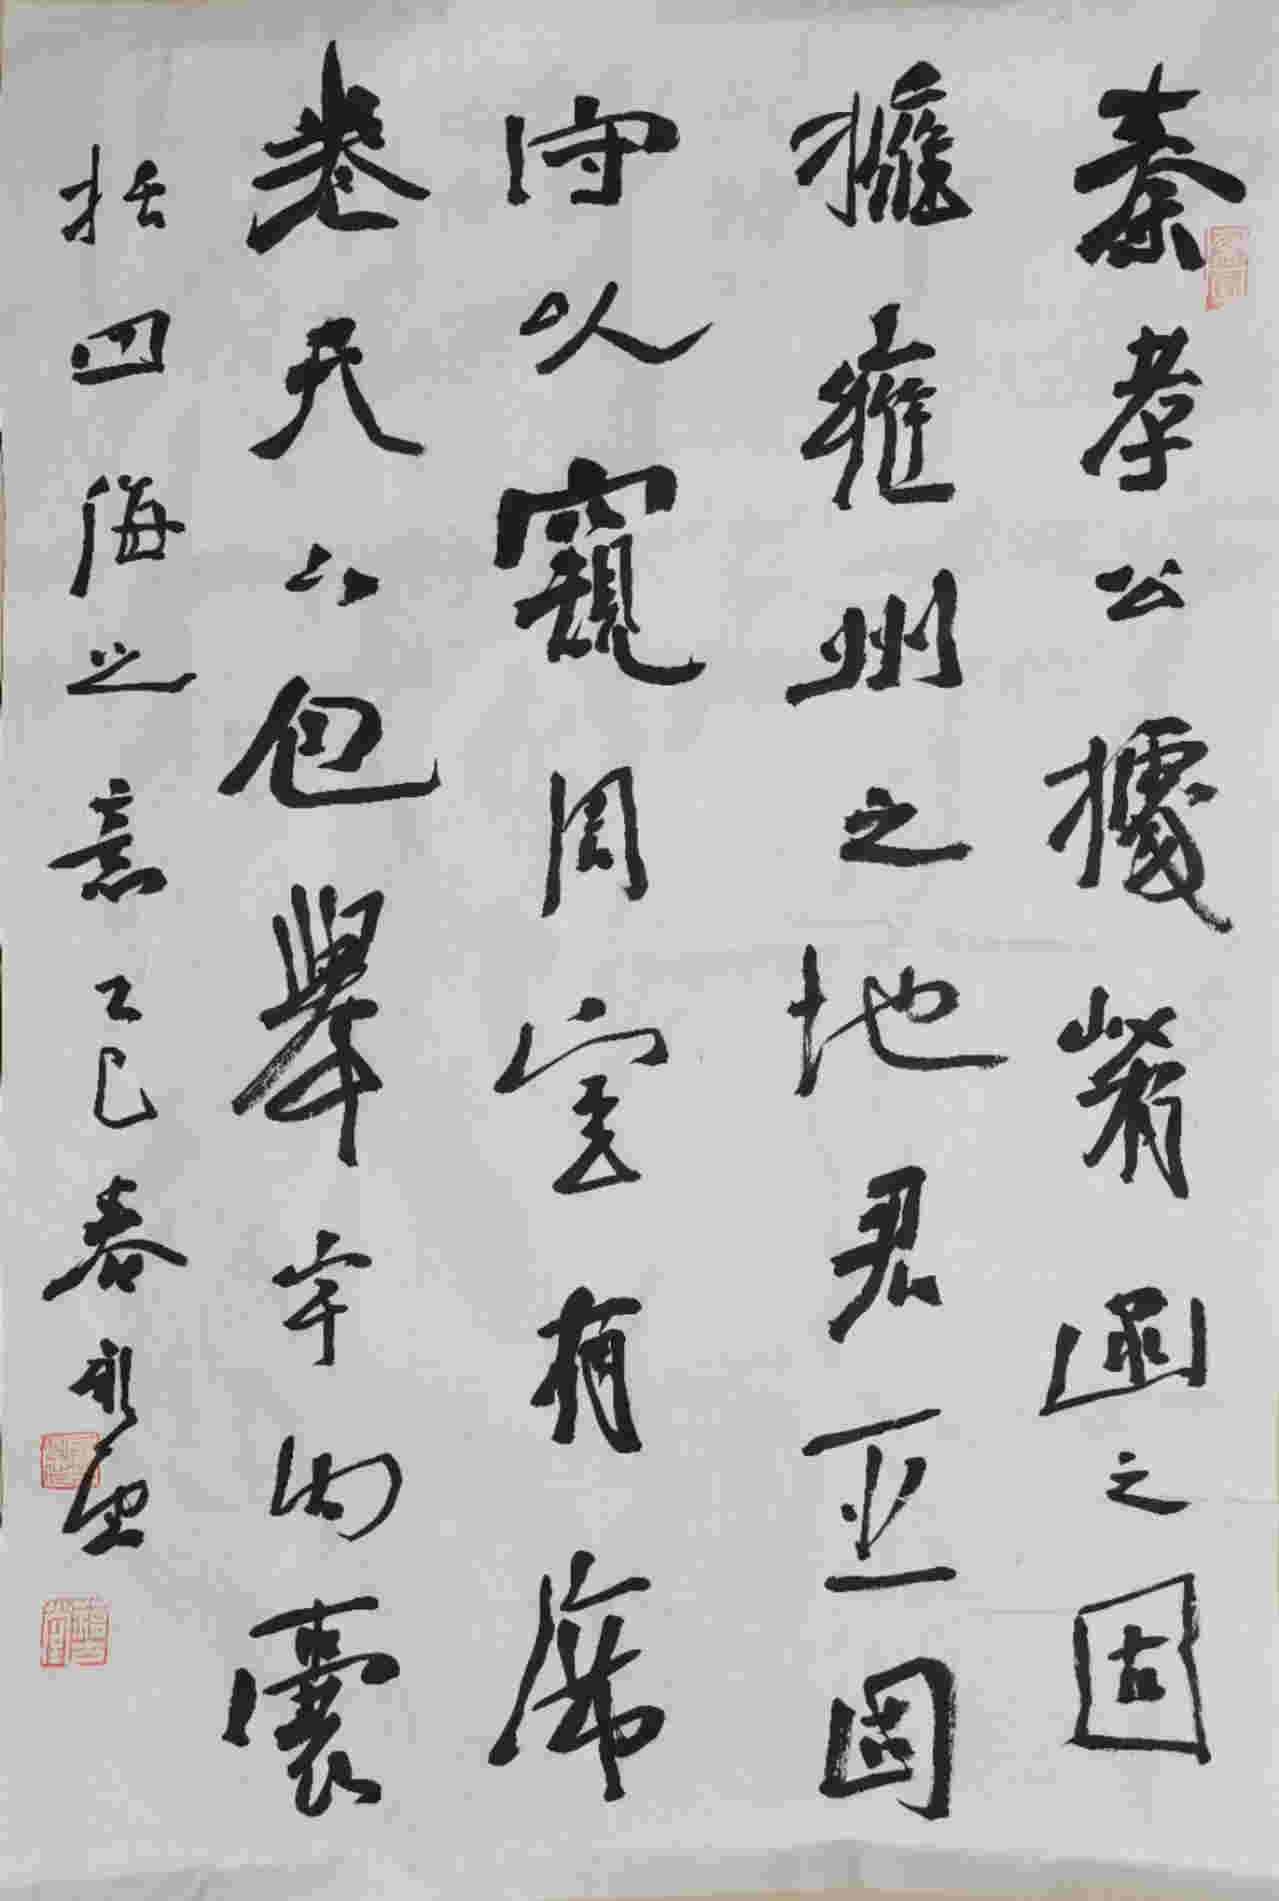 秦孝公據崤函之固
擁雍州之地君臣固
守以窺周室有席
卷天下包舉宇內囊
括四海之意乙巳春